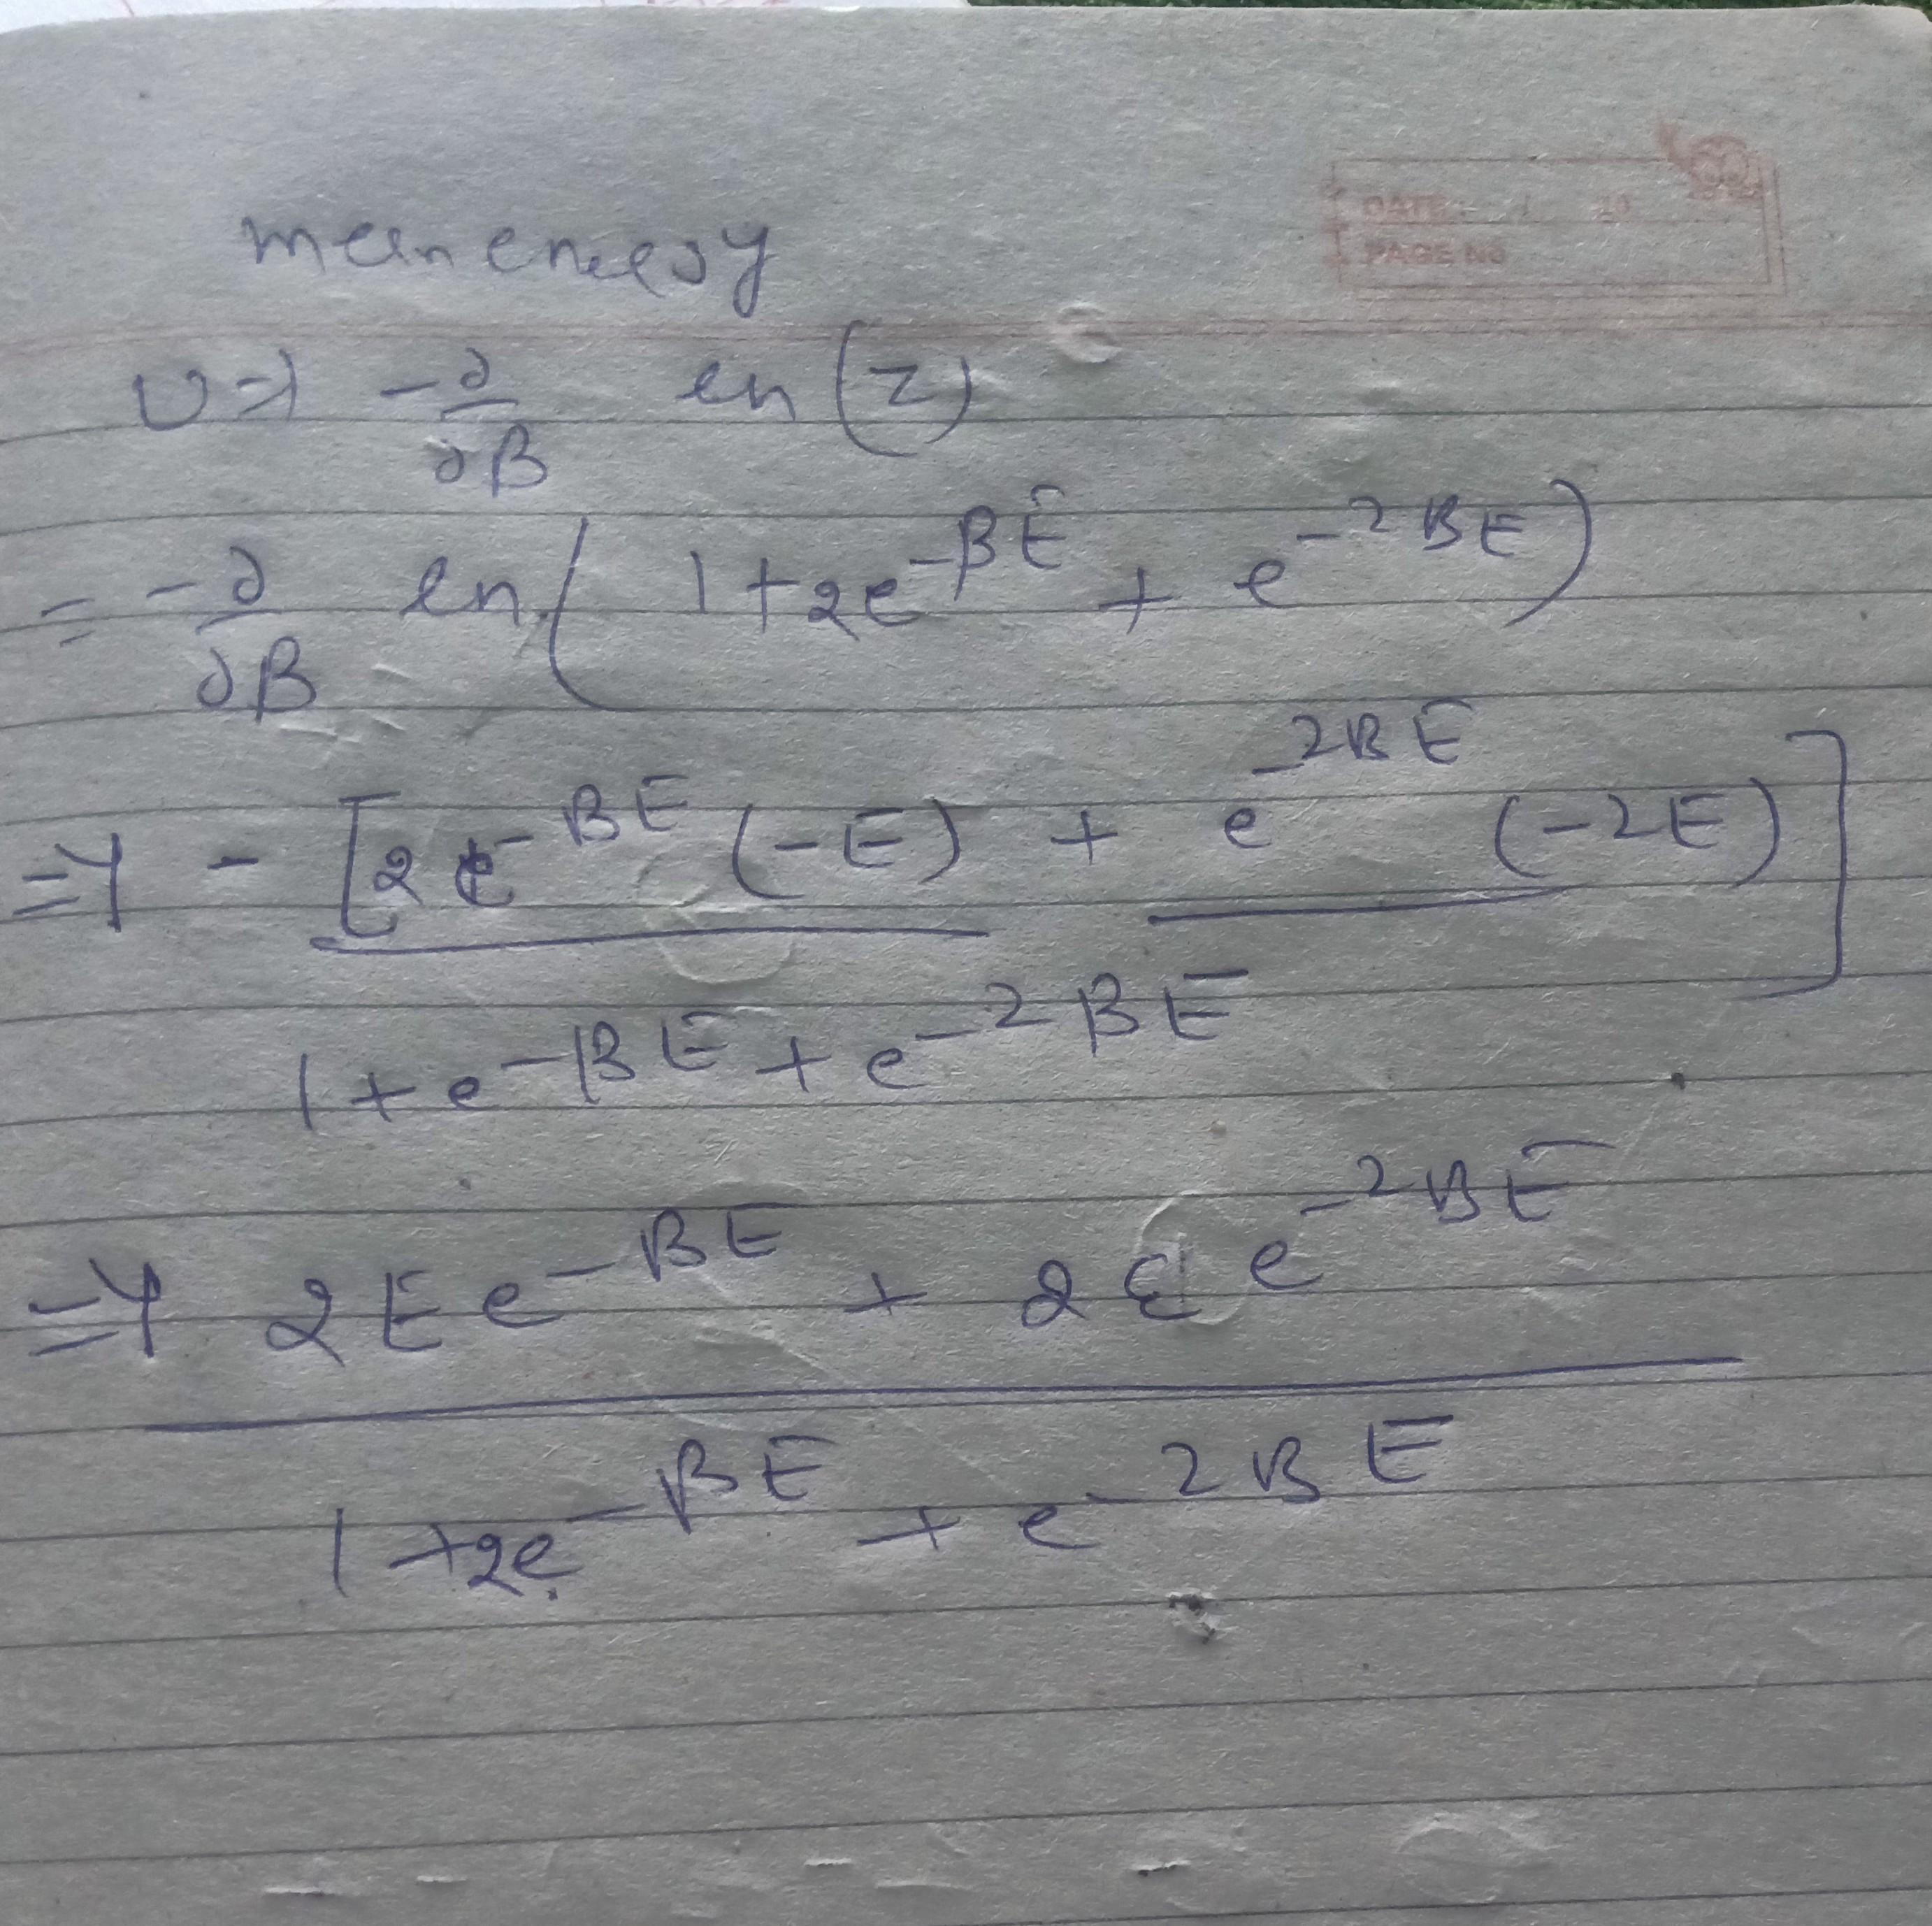 DATE / 20
PAGE NO
mean energy
U => -∂/∂B ln (Z)
= -∂/∂B ln ( 1+2e^-βE + e^-2BE )
=> - [2e^-BE (-E) + e^-2BE (-2E)]
1+e^-βE+e^-2BE
=> 2Ee^-BE + 2Ee^-2BE
1+2e^-βE + e^-2BE